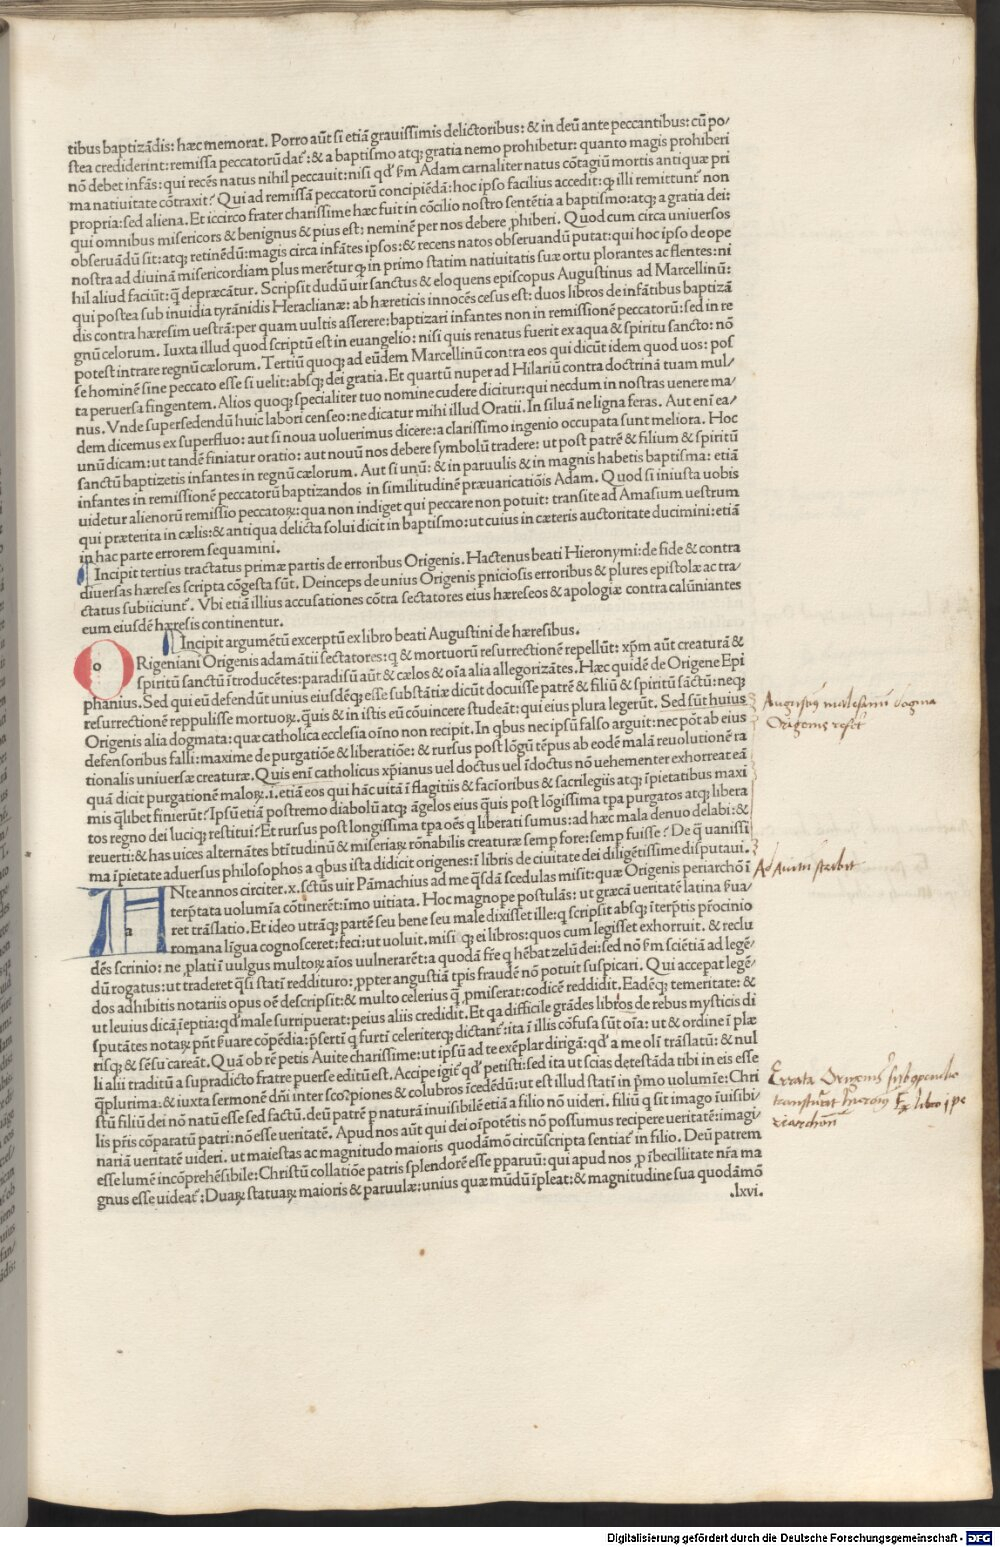 tibus baptizādis: hæc memorat. Porro aūt si etiā grauissimis delictoribus: & in deū ante peccantibus: cū po/
stea crediderint: remissa peccatorū dat᷑: & a baptismo atq; gratia nemo prohibetur: quanto magis prohiberi
nō debet infās: qui recēs natus nihil peccauit: nisi qd᷑ s̄m Adam carnaliter natus cōtagiū mortis antiquæ pri
ma natiuitate cōtraxit? Qui ad remissā peccatorū concipiēdā: hoc ipso facilius accedit: ꝙ illi remittunt᷑ non
propria: sed aliena. Et iccirco frater charissime hæc fuit in cōcilio nostro sentētia a baptismo: atq; a gratia dei:
qui omnibus misericors & benignus & pius est: neminē per nos debere ꝓhiberi. Quod cum circa uniuersos
obseruādū sit: atq; retinēdū: magis circa infātes ipsos: & recens natos obseruandū putat: qui hoc ipso de ope
nostra ad diuinā misericordiam plus merētur ꝙ in primo statim natiuitatis suæ ortu plorantes ac flentes: ni
hil aliud faciūt: q̄ depræcātur. Scripsit dudū uir sanctus & eloquens episcopus Augustinus ad Marcellinū:
qui postea sub inuidia tyrānidis Heraclianæ: ab hæreticis innocēs cesus est: duos libros de infātibus baptizā
dis contra hæresim uestrā: per quam uultis asserere: baptizari infantes non in remissionē peccatorū: sed in re
gnū celorum. Iuxta illud quod scriptū est in euangelio: nisi quis renatus fuerit ex aqua & spiritu sancto: nō
potest intrare regnū cælorum. Tertiū quoq; ad eūdem Marcellinū contra eos qui dicūt idem quod uos: pos
se hominē sine peccato esse si uelit: absq; dei gratia. Et quartū nuper ad Hilariū contra doctrinā tuam mul/
ta peruersa fingentem. Alios quoq; specialiter tuo nomine cudere dicitur: qui necdum in nostras uenere ma/
nus. Vnde supersedendū huic labori censeo: ne dicatur mihi illud Oratii. In siluā ne ligna feras. Aut enī ea/
dem dicemus ex superfluo: aut si noua uoluerimus dicere: a clarissimo ingenio occupata sunt meliora. Hoc
unū dicam: ut tandē finiatur oratio: aut nouū nos debere symbolū tradere: ut post patrē & filium & spiritū
sanctū baptizetis infantes in regnū cælorum. Aut si unū: & in paruulis & in magnis habetis baptisma: etiā
infantes in remissionē peccatorū baptizandos in similitudinē præuaricatiōis Adam. Quod si iniusta uobis
uidetur alienorū remissio peccatoꝝ: qua non indiget qui peccare non potuit: transite ad Amasium uestrum
qui præterita in cælis: & antiqua delicta solui dicit in baptismo: ut cuius in cæteris auctoritate ducimini: etiā
in hac parte errorem sequamini.
Incipit tertius tractatus primæ partis de erroribus Origenis. Hactenus beati Hieronymi: de fide & contra
diuersas hæreses scripta cōgesta sūt. Deinceps de unius Origenis ꝑniciosis erroribus & plures epistolæ ac tra/
ctatus subiiciunt᷑. Vbi etiā illius accusationes cōtra sectatores eius hæreseos & apologiæ contra calūniantes
eum eiusdē hæresis continentur.
Incipit argumētū excerptū ex libro beati Augustini de hæresibus.
O RIgeniani Origenis adamātii sectatores: q & mortuorū resurrectionē repellūt: xp̄m aūt creaturā &
spiritū sanctū ītroducētes: paradisū aūt & cælos & oīa alia allegorizātes. Hæc quidē de Origene Epi
phanius. Sed qui eū defendūt unius eiusdēq; esse substātiæ dicūt docuisse patrē & filiū & spiritū sāctū: neq;
resurrectionē reppulisse mortuoꝝ. q̄uis & in istis eū cōuincere studeāt: qui eius plura legerūt. Sed sūt huius
Origenis alia dogmata: quæ catholica ecclesia oīno non recipit. In qbus nec ipsū falso arguit: nec pōt ab eius
defensoribus falli: maxime de purgatiōe & liberatiōe: & rursus post lōgū tēpus ab eodē malā reuolutionē ra
tionalis uniuersæ creaturæ. Quis enī catholicus xp̄ianus uel doctus uel īdoctus nō uehementer exhorreat eā
quā dicit purgationē maloꝝ .i. etiā eos qui hāc uitā ī flagitiis & facīoribus & sacrilegiis atq; īpietatibus maxi
mis q̄libet finierūt? Ipsū etiā postremo diabolū atq; āgelos eius q̄uis post lōgissima tp̄a purgatos atq; libera
tos regno dei luciq; restitui? Et rursus post longissima tp̄a oēs q liberati sumus: ad hæc mala denuo delabi: &
reuerti: & has uices alternātes btītudinū & miseriaꝝ rōnabilis creaturæ semp fore: semp fuisse? De q̄ uanissi
ma īpietate aduersus philosophos a qbus ista didicit origenes: ī libris de ciuitate dei diligētissime disputaui.
A Nte annos circiter .x. sctūs uir Pāmachius ad me q̄sdā scedulas misit: quæ Origenis periarchō ī
terp̄tata uolumīa cōtinerēt: īmo uitiata. Hoc magnope postulās: ut græcā ueritatē latina s̄ua/
ret trāslatio. Et ideo utrāq; partē seu bene seu male dixisset ille: q scripsit absq; īterp̄tis p̄rocinio
romana līgua cognosceret: feci: ut uoluit. misi q; ei libros: quos cum legisset exhorruit. & reclu
dēs scrinio: ne ꝓlati ī uulgus multoꝝ aīos uulnerarēt: a quodā fr̄e q hēbat zelū dei: sed nō s̄m sciētiā ad legē/
dū rogatus: ut traderet q̄si statī redditurо: ꝓpter angustiā tp̄is fraudē nō potuit suspicari. Qui accepat legē/
dos adhibitis notariis opus oē descripsit: & multo celerius q̄ ꝓmiserat: codicē reddidit. Eadēq; temeritate: &
ut leuius dicā īeptia: qd᷑ male surripuerat: peius aliis credidit. Et qa difficile grādes libros de rebus mysticis di
sputātes notaꝝ p̄nt s̄uare cōpēdia: p̄sertī q furtī celeriterq; dictant᷑: ita ī illis cōfusa sūt oīa: ut & ordine ī plæ
risq; & sēsu careāt. Quā ob rē petis Auite charissime: ut ipsū ad te exēplar dirigā: qd᷑ a me olī trāslatū: & nul
li alii traditū a supradicto fratre puerse editū est. Accipe igit᷑ qd᷑ petisti: sed ita ut scias detestāda tibi in eis esse
q̄plurima: & iuxta sermonē dn̄i inter scorpiones & colubros īcedēdū: ut est illud statī in p̄mo uolumīe: Chri
stū filiū dei nō natū esse sed factū. deū patrē p naturā inuisibilē etiā a filio nō uideri. filiū q sit imago īuisibi/
lis pr̄is cōparatū patri: nō esse ueritatē. Apud nos aūt qui dei oīpotētis nō possumus recipere ueritatē: imagi/
nariā ueritatē uideri. ut maiestas ac magnitudo maioris quodāmō circūscripta sentiat᷑ in filio. Deū patrem
esse lumē incōprehēsibile: Christū collatiōe patris splendorē esse pparuū: qui apud nos ꝓ ībecillitate nr̄a ma
gnus esse uideat᷑: Duaꝝ statuaꝝ maioris & paruulæ: unius quæ mūdū īpleat: & magnitudine sua quodāmō
.lxvi.
Origenis
Ad Avitū scribit
Errata Origenis
Ex libro j pe
riarchōn
Digitalisierung gefördert durch die Deutsche Forschungsgemeinschaft - DFG